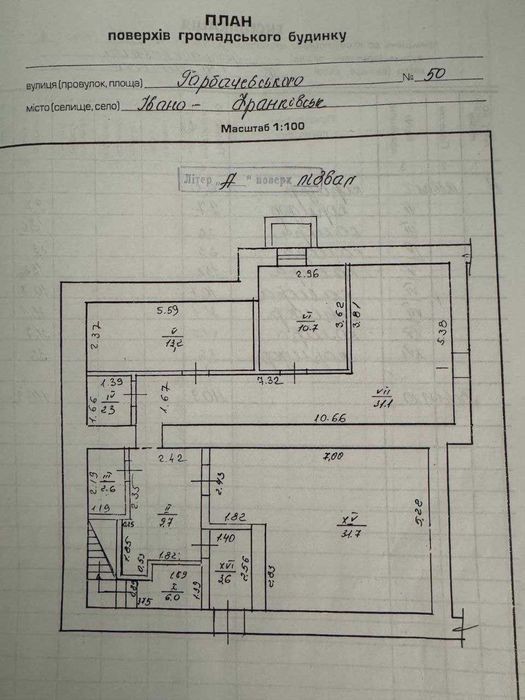 ПЛАН
поверхів громадського будинку
вулиця (провулок, площа) Гарбачевського № 50
місто (селище, село) Івано - Франківськ
Масштаб 1:100
Літер „А“ поверх підвал
2.96
5.59
2.37
V
13,2
VI
10.7
3.62
3.81
5.38
1.39
7.32
1.66
IV
2.3
1.67
VII
31.1
10.66
2.42
7,00
2.19
III
2.6
2.35
2.43
1.19
II
9.7
XV
31.7
5,28
1.82
1.85
0.53
1.82
1.40
XVI
3.6
2.56
2.83
1.69
I
6.0
1.39